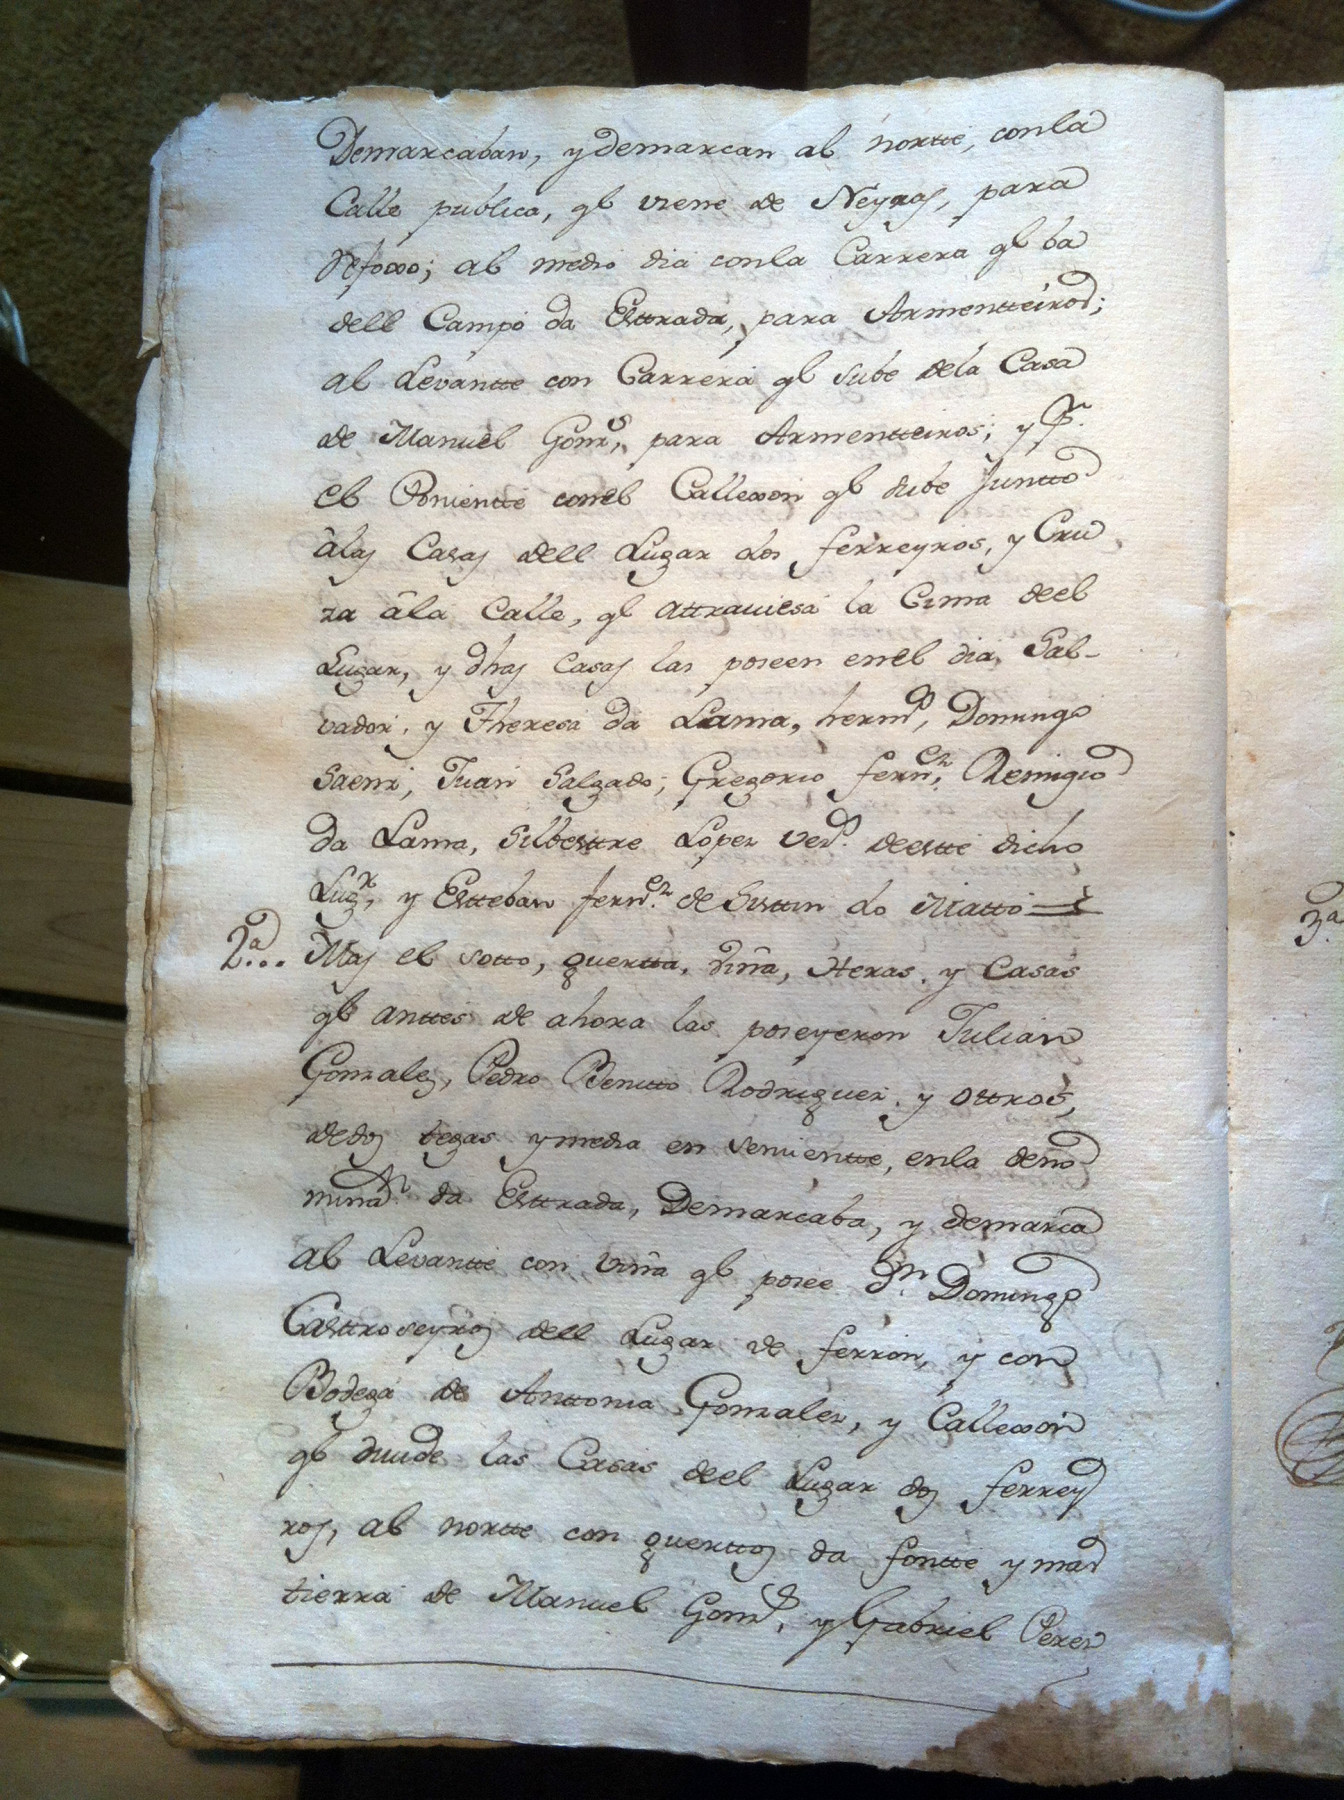 Demarcaban, y demarcan al nortte, con la
Calle publica, qe viene de Neyras, para
Refoxo; al medio dia con la Carrera qe ba
dell Campo da Esttrada, para Armentteiros;
al Levantte con Carrera qe sube de la Casa
de Manuel Gonzs, para Armentteiros; y Pr.
el Ponientte con el Callexon qe sube Juntto
âlas Casas dell Lugar dos ferreyros, y Cru
za âla Calle, qe attraviesa la Cima deel
Lugar, y dhas Casas las poseen en el dia, Sal-
vador, y Theresa da Lama, hermos, Domingo
Saenz, Juan Salgado; Gregorio fernez, Remigio
da Lama, Silbesttre Lopez vezs. de estte dicho
Lugr, y Estteban fernez. de Susttin do Matto =
2a... Mas el sotto, guertta, viña, Heras, y Casas
qe anttes de ahora las poseyeron Julian
Gonzalez, Pedro Benitto Rodriguez, y ottros,
de dos tegas y media en semientte, en la deno
minan. da Esttrada, Demarcaba, y demarca
al Levantte con viña qe posee Dn. Domingo
Casttroseyros dell Lugar de ferron, y con
Bodega de Anttonia Gonzalez, y Callexon
qe divide las Casas deel Lugar dos ferrey
ros, al nortte con guerttos da fontte y mas
tierra de Manuel Gonzs, y Gabriel Perez
3a